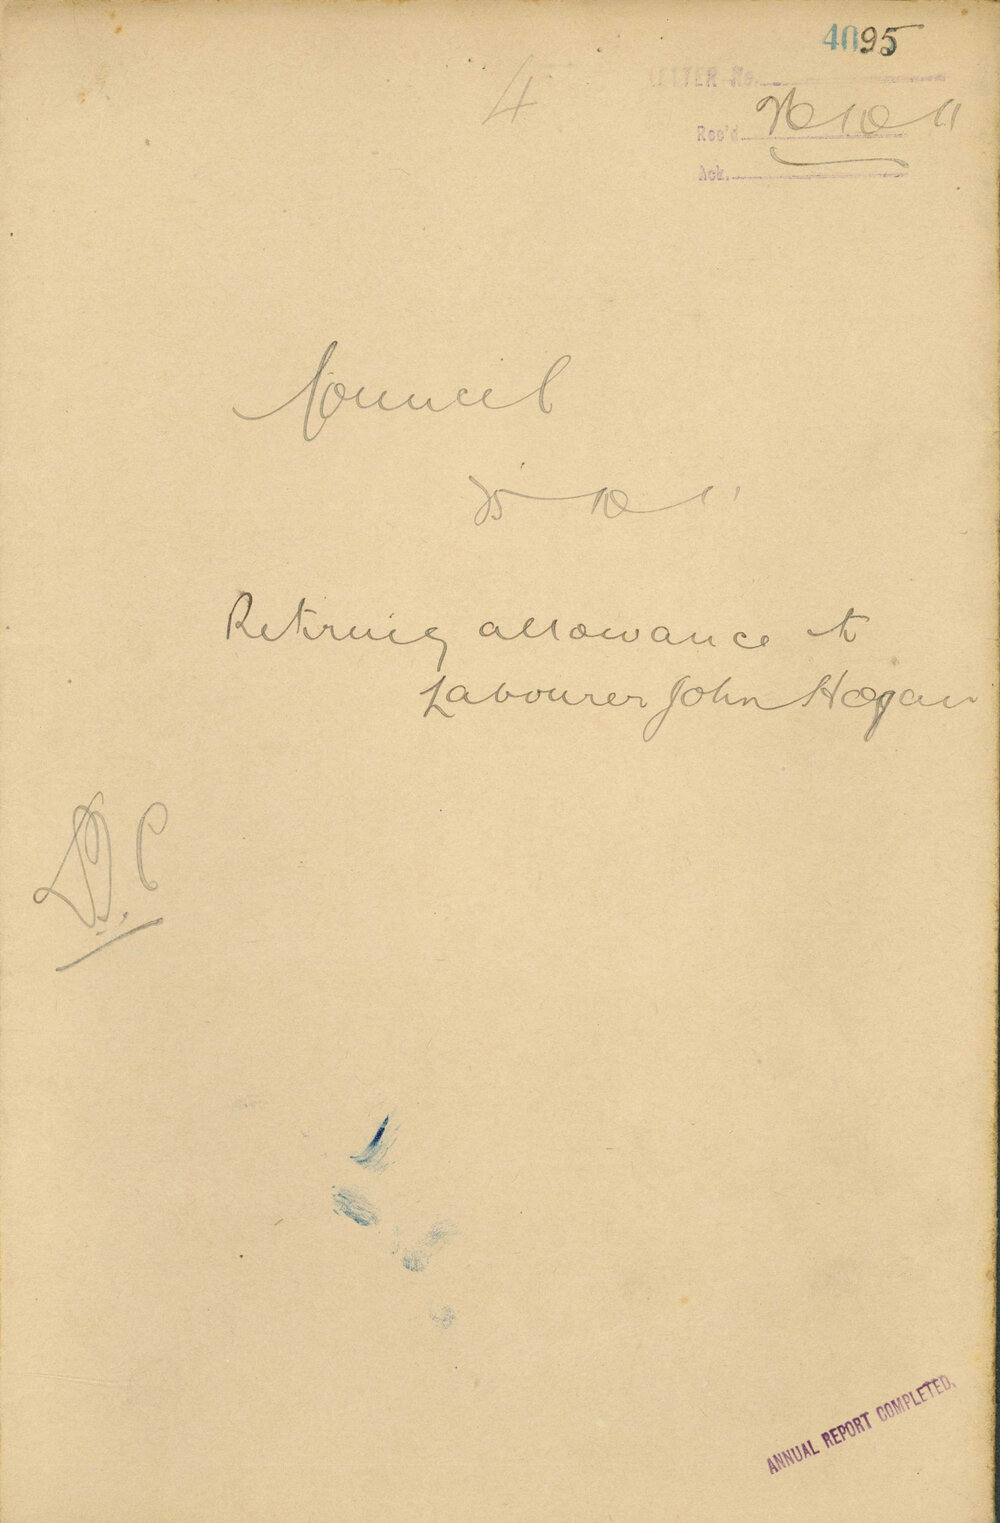 4095
4
LETTER No.
Rec'd 26 10 11
Ack.
Council
25 10 11
Retiring allowance to
Labourer John Hogan
D.C
ANNUAL REPORT COMPLETED.